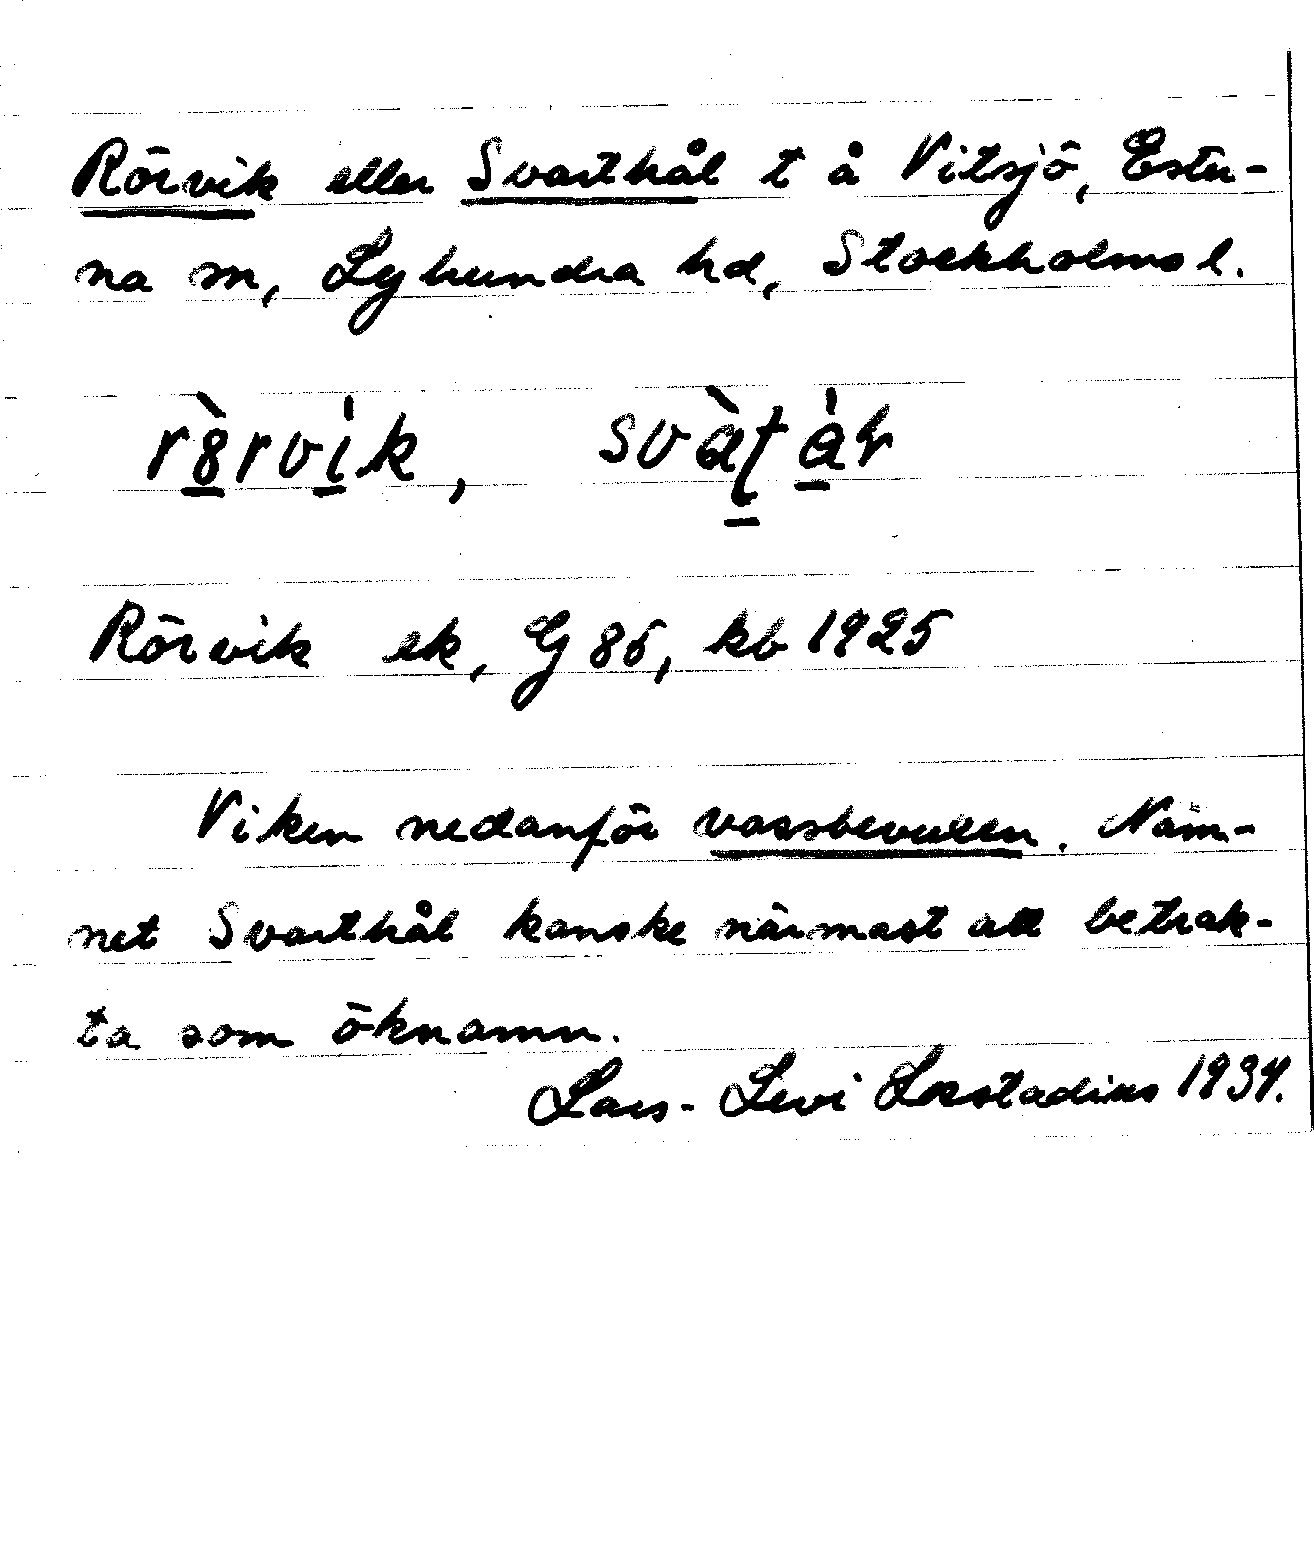 Rörvik eller Svarthål t å Vitsjö, Estu-
na sn, Lyhundra hd, Stockholms l.
rö̀rvìk, svàʈàɽ
Rörvik ek, G 86, kb 1925
Viken nedanför vassbevuxen. Nam-
net Svarthål kanske närmast att betrak-
ta som öknamn.
Lars-Levi Læstadius 1934.